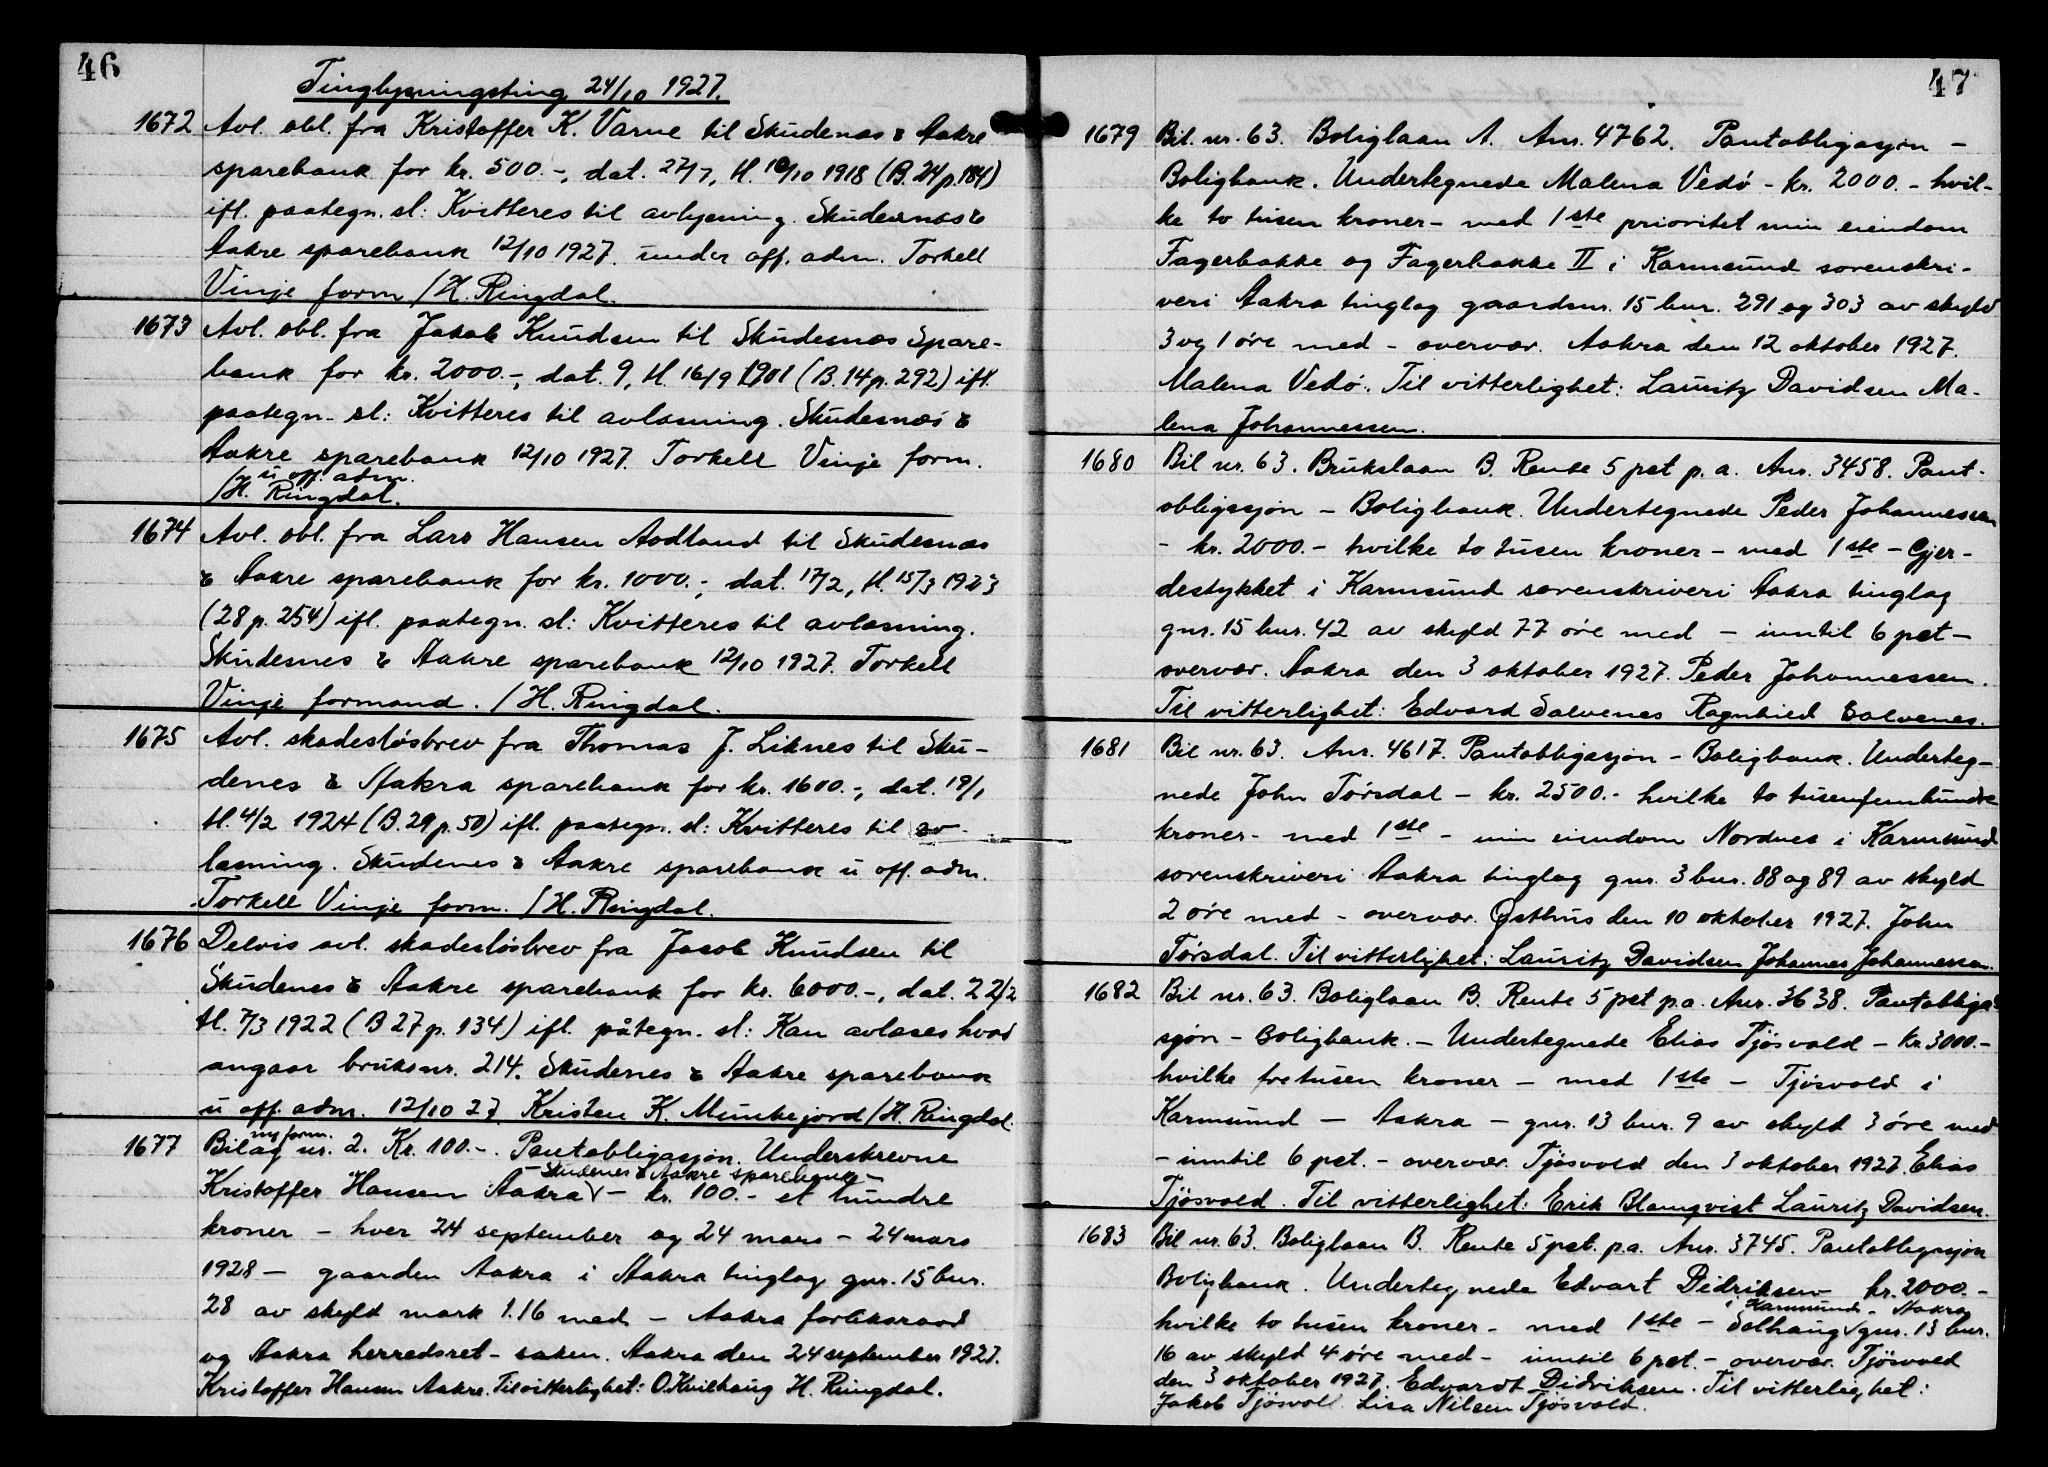 46
Tinglysningsting 24/10 1927.
1672 Avl. obl. fra Kristoffer K. Varne til Skudenæs & Aakre
sparebank for kr. 500.-, dat. 27/7, tl. 10/10 1918 (B. 24 p. 184)
ifl. paategn. sl: Kvitteres til avlysning. Skudesnæs &
Aakre sparebank 12/10 1927. under off. adm. Torkell
Vinje form /H. Ringdal.
1673 Avl. obl. fra Jakob Knudsen til Skudesnæs Spare-
bank for kr. 2000.-, dat. 9, tl. 16/9 1901 (B. 14 p. 292) ifl.
paategn. sl: Kvitteres til avlæsning. Skudesnæs &
Aakre sparebank 12/10 1927. Torkell Vinje form.
u. off. adm.
/H. Ringdal.
1674 Avl. obl. fra Lars Hansen Aodland til Skudesnæs
& Aakre sparebank for kr. 1000.-, dat. 17/2, tl. 15/3 1923
(28 p. 254) ifl. paategn. sl: Kvitteres til avlæsning.
Skudesnes & Aakre sparebank 12/10 1927. Torkell
Vinje formand. /H. Ringdal.
1675 Avl. skadesløsbrev fra Thomas J. Liknes til Sku-
denes & Aakra sparebank for kr. 1600.-, dat. 19/1
tl. 4/2 1924 (B. 29 p. 50) ifl. paategn. sl: Kvitteres til av-
læsning. Skudenes & Aakre sparebank u off. adm.
Torkell Vinje form. /H. Ringdal.
1676 Delvis avl. skadesløsbrev fra Jacob Knudsen til
Skudenes & Aakre sparebank for kr. 6000.-, dat. 22/2
tl. 7/3 1922 (B 27 p. 134) ifl. påtegn. sl: Kan avlæses hvad
angaar bruksnr. 214. Skudenes & Aakre sparebank
u off. adm. 12/10 27. Kristen K. Munkejord /H. Ringdal.
ny form.
1677 Bilag nr. 2. Kr. 100.-. Pantobligasjon. Underskrevne
- Skudenes & Aakre sparebank -
Kristoffer Hansen Aakra √ - kr. 100.- et hundre
kroner - hver 24 september og 24 mars - 24 mars
1928 - gaarden Aakra i Aakra tinglag gnr. 15 bnr.
28 av skyld mark 1.16 med - Aakra forliksraad
og Aakra herredsret - saken. Aakra den 24 september 1927.
Kristoffer Hansen Aakre. Til vitterlighet: O. Kvilhaug H. Ringdal.
47
1679 Bil. nr. 63. Boliglaan A. Anr. 4762. Pantobligasjon -
Boligbank. Undertegnede Malena Vedø - kr. 2000.- hvil-
ke to tusen kroner - med 1ste prioritet min eiendom
Fagerbakke og Fagerbakke II i Karmsund sorenskri-
veri Aakra tinglag gaardsnr. 15 bnr. 291 og 303 av skyld
3 og 1 øre med - overvær. Aakra den 12 oktober 1927.
Malena Vedø. Til vitterlighet: Lauritz Davidsen Ma-
lena Johannessen.
1680 Bil nr. 63. Brukslaan B. Rente 5 pct p. a. Anr. 3458. Pant-
obligasjon - Boligbank. Undertegnede Peder Johannessen
- kr. 2000.- hvilke to tusen kroner - med 1ste - Gjer-
destykket i Karmsund sorenskriveri Aakra tinglag
gnr. 15 bnr. 42 av skyld 77 øre med - inntil 6 pct -
overvær. Aakra den 3 oktober 1927. Peder Johannessen.
Til vitterlighet: Edvard Salvenes Ragnhild Salvenes.
1681 Bil nr. 63. Anr. 4617. Pantobligasjon - Boligbank. Underteg-
nede John Tørsdal - kr. 2500.- hvilke to tusenfemhundre
kroner - med 1ste - min eiendom Nordnes i Karmsund
sorenskriveri Aakra tinglag gnr. 3 bnr. 88 og 89 av skyld
2 øre med - overvær. Østhus den 10 oktober 1927. John
Tørsdal. Til vitterlighet: Lauritz Davidsen Johannes Johannessen.
1682 Bil nr. 63. Boliglaan B. Rente 5 pct p.a. Anr. 3638. Pantobliga-
sjon - Boligbank. - Undertegnede Elias Tjøsvold - kr 3000.-
hvilke tretusen kroner - med 1ste - Tjøsvold i
Karmsund - Aakra - gnr. 13 bnr. 9 av skyld 3 øre med
- inntil 6 pct. - overvær. Tjøsvold den 3 oktober 1927. Elias
Tjøsvold. Til vitterlighet: Erik Blomqvist Lauritz Davidsen.
1683 Bil nr. 63. Boliglaan B. Rente 5 pct. p.a. Anr. 3745. Pantobligasjon
Boligbank. Undertegnede Edvart Didriksen - kr. 2000.-
i Karmsund - Aakra
hvilke to tusen kroner - med 1ste - Solhaug √ gnr. 13 bnr.
16 av skyld 4 øre med - inntil 6 pct. - overvær. Tjøsvold
den 3 oktober 1927. Edvardt Didriksen. Til vitterlighet:
Jakob Tjøsvoll Lisa Nilsen Tjøsvold.